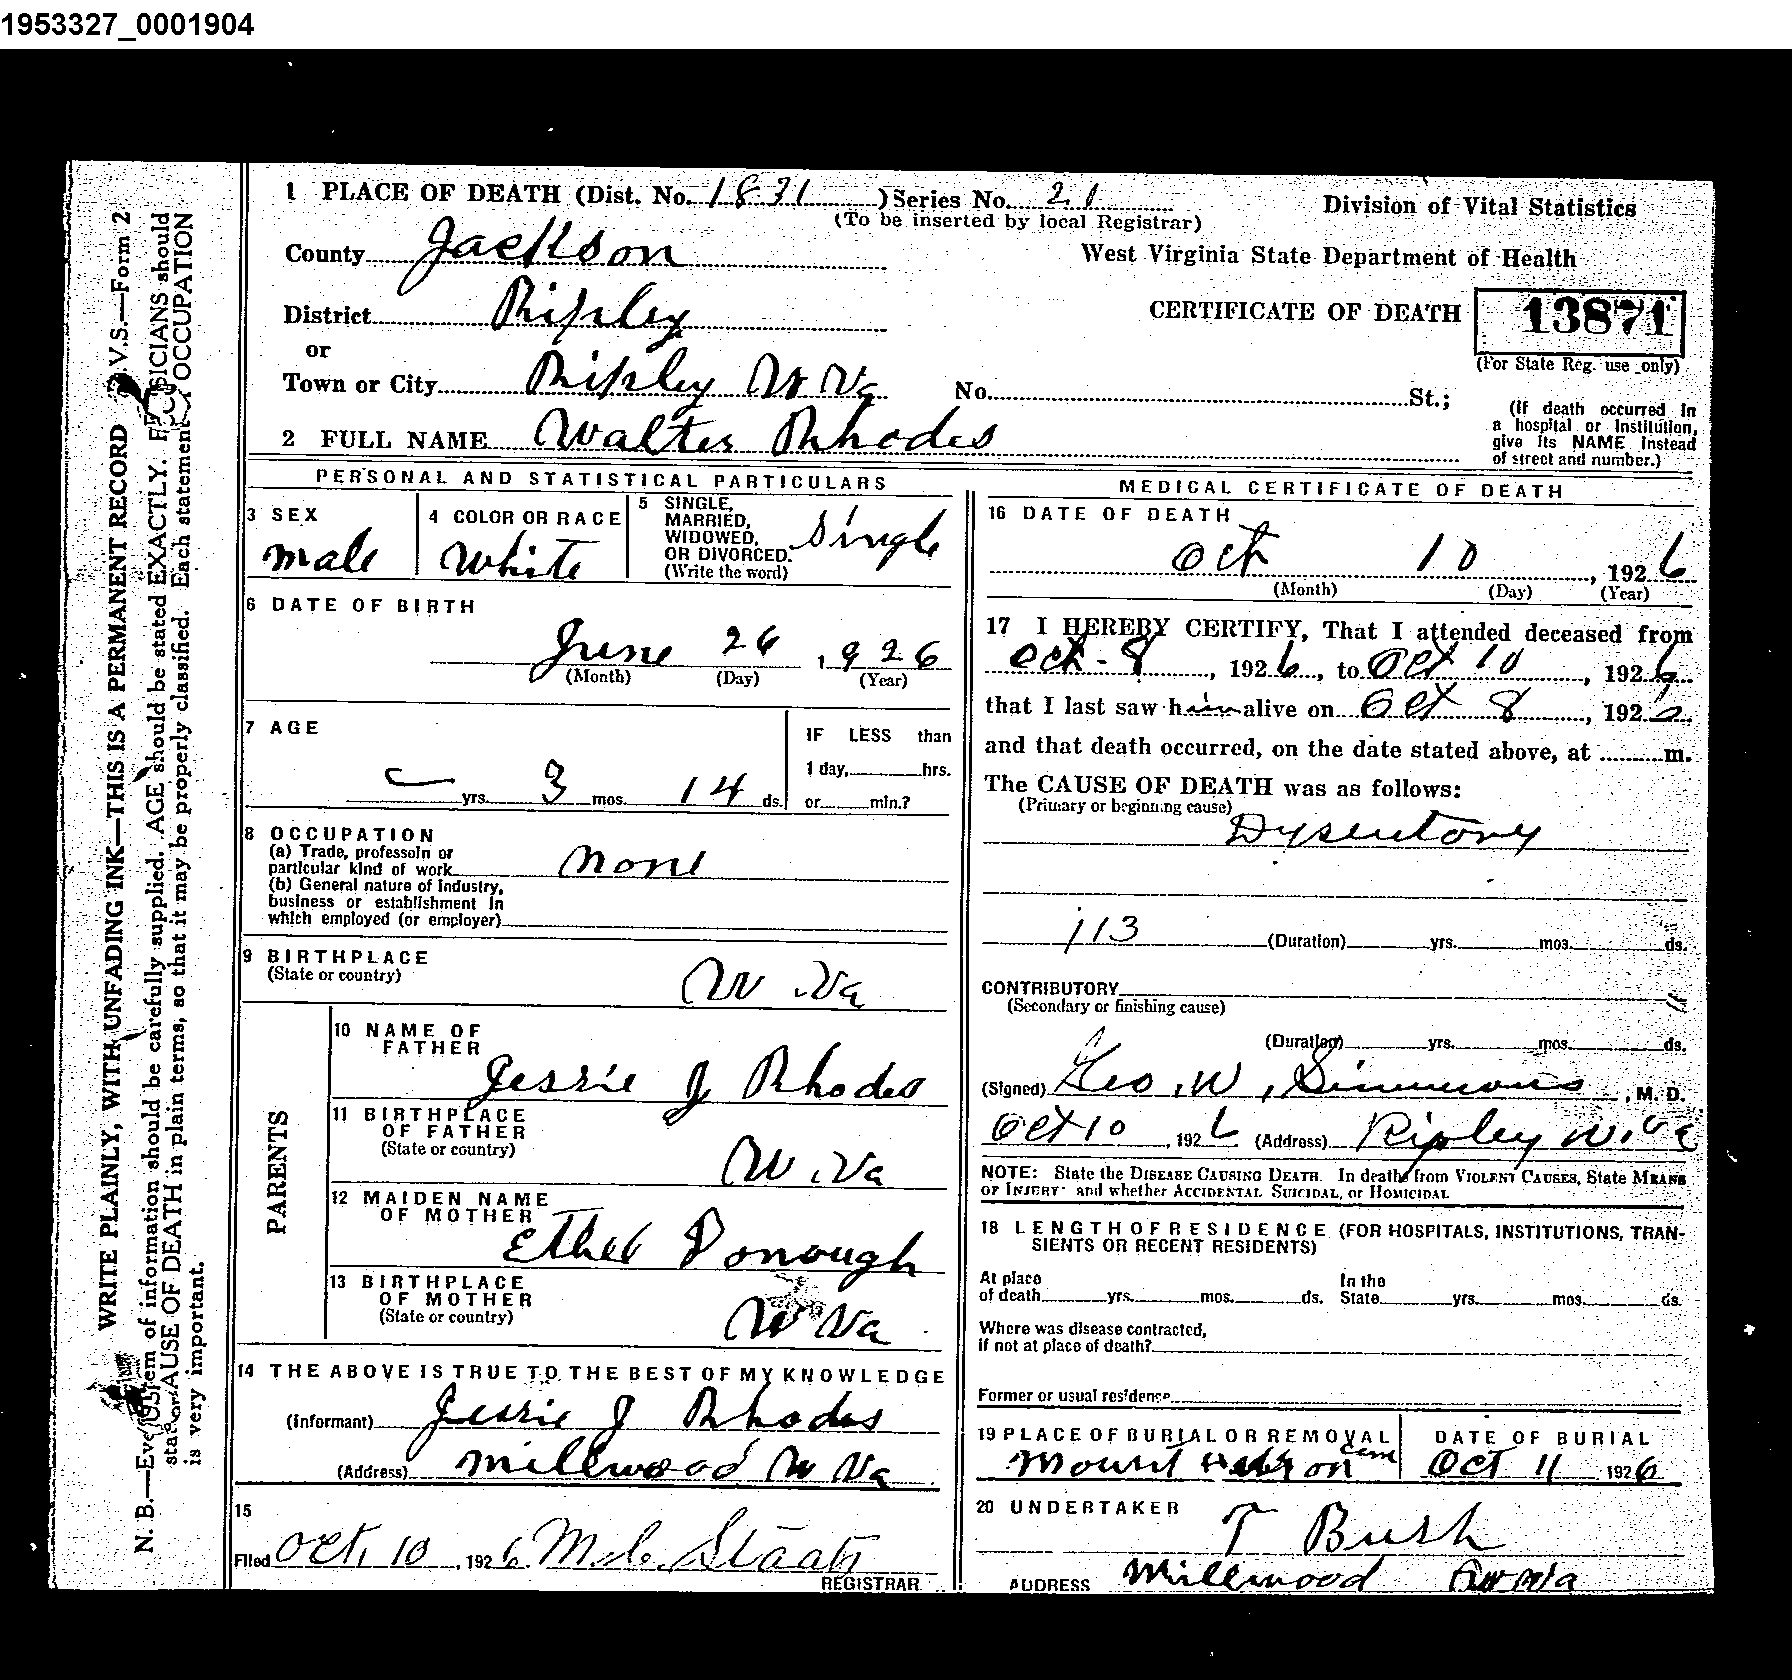 1953327_0001904
1 PLACE OF DEATH (Dist. No. 1831 ) Series No. 21
(To be inserted by local Registrar)
Division of Vital Statistics
County Jackson
West Virginia State Department of Health
District Ripley
CERTIFICATE OF DEATH 13871
(For State Reg. use only)
or
Town or City Ripley W Va No. St.;
(If death occurred in
a hospital or institution,
give its NAME instead
of street and number.)
2 FULL NAME Walter Rhodes
PERSONAL AND STATISTICAL PARTICULARS
3 SEX
male
4 COLOR OR RACE
White
5 SINGLE,
MARRIED,
WIDOWED,
OR DIVORCED.
(Write the word)
Single
6 DATE OF BIRTH
June 26, 926
(Month) (Day) (Year)
7 AGE
yrs. 3 mos. 14 ds.
IF LESS than
1 day, hrs.
or min.?
8 OCCUPATION
(a) Trade, professoin or
particular kind of work none
(b) General nature of industry,
business or establishment in
which employed (or employer)
9 BIRTHPLACE
(State or country)
W. Va
PARENTS
10 NAME OF
FATHER
Jessie J Rhodes
11 BIRTHPLACE
OF FATHER
(State or country)
W. Va
12 MAIDEN NAME
OF MOTHER
Ethel Donough
13 BIRTHPLACE
OF MOTHER
(State or country)
W Va
14 THE ABOVE IS TRUE TO THE BEST OF MY KNOWLEDGE
(Informant) Jessie J Rhodes
(Address) Millwood W Va
15
Filed Oct. 10, 1926 Staats
REGISTRAR
MEDICAL CERTIFICATE OF DEATH
16 DATE OF DEATH
Oct 10, 1926
(Month) (Day) (Year)
17 I HEREBY CERTIFY, That I attended deceased from
Oct - 8, 1926, to Oct 10, 1926
that I last saw him alive on Oct 8, 192
and that death occurred, on the date stated above, at m.
The CAUSE OF DEATH was as follows:
(Primary or beginning cause)
Dysentory
113 (Duration) yrs. mos. ds.
CONTRIBUTORY
(Secondary or finishing cause)
(Duration) yrs. mos. ds.
(Signed) Geo. W. Simmons, M. D.
Oct 10, 1926 (Address) Ripley W. Va
NOTE: State the DISEASE CAUSING DEATH. In death from VIOLENT CAUSES, State MEANS
OF INJURY and whether ACCIDENTAL SUICIDAL, or HOMICIDAL
18 LENGTH OF RESIDENCE (FOR HOSPITALS, INSTITUTIONS, TRAN-
SIENTS OR RECENT RESIDENTS)
At place
of death yrs. mos. ds.
In the
State yrs. mos. ds.
Where was disease contracted,
if not at place of death?
Former or usual residence
19 PLACE OF BURIAL OR REMOVAL
Mount Cem
DATE OF BURIAL
Oct 11 1926
20 UNDERTAKER
T Bush
ADDRESS Millwood
V.S.—Form 2
WRITE PLAINLY, WITH UNFADING INK—THIS IS A PERMANENT RECORD
N. B.—Every item of information should be carefully supplied. AGE should be stated EXACTLY. PHYSICIANS should
state CAUSE OF DEATH in plain terms, so that it may be properly classified. Each statement of OCCUPATION
is very important.